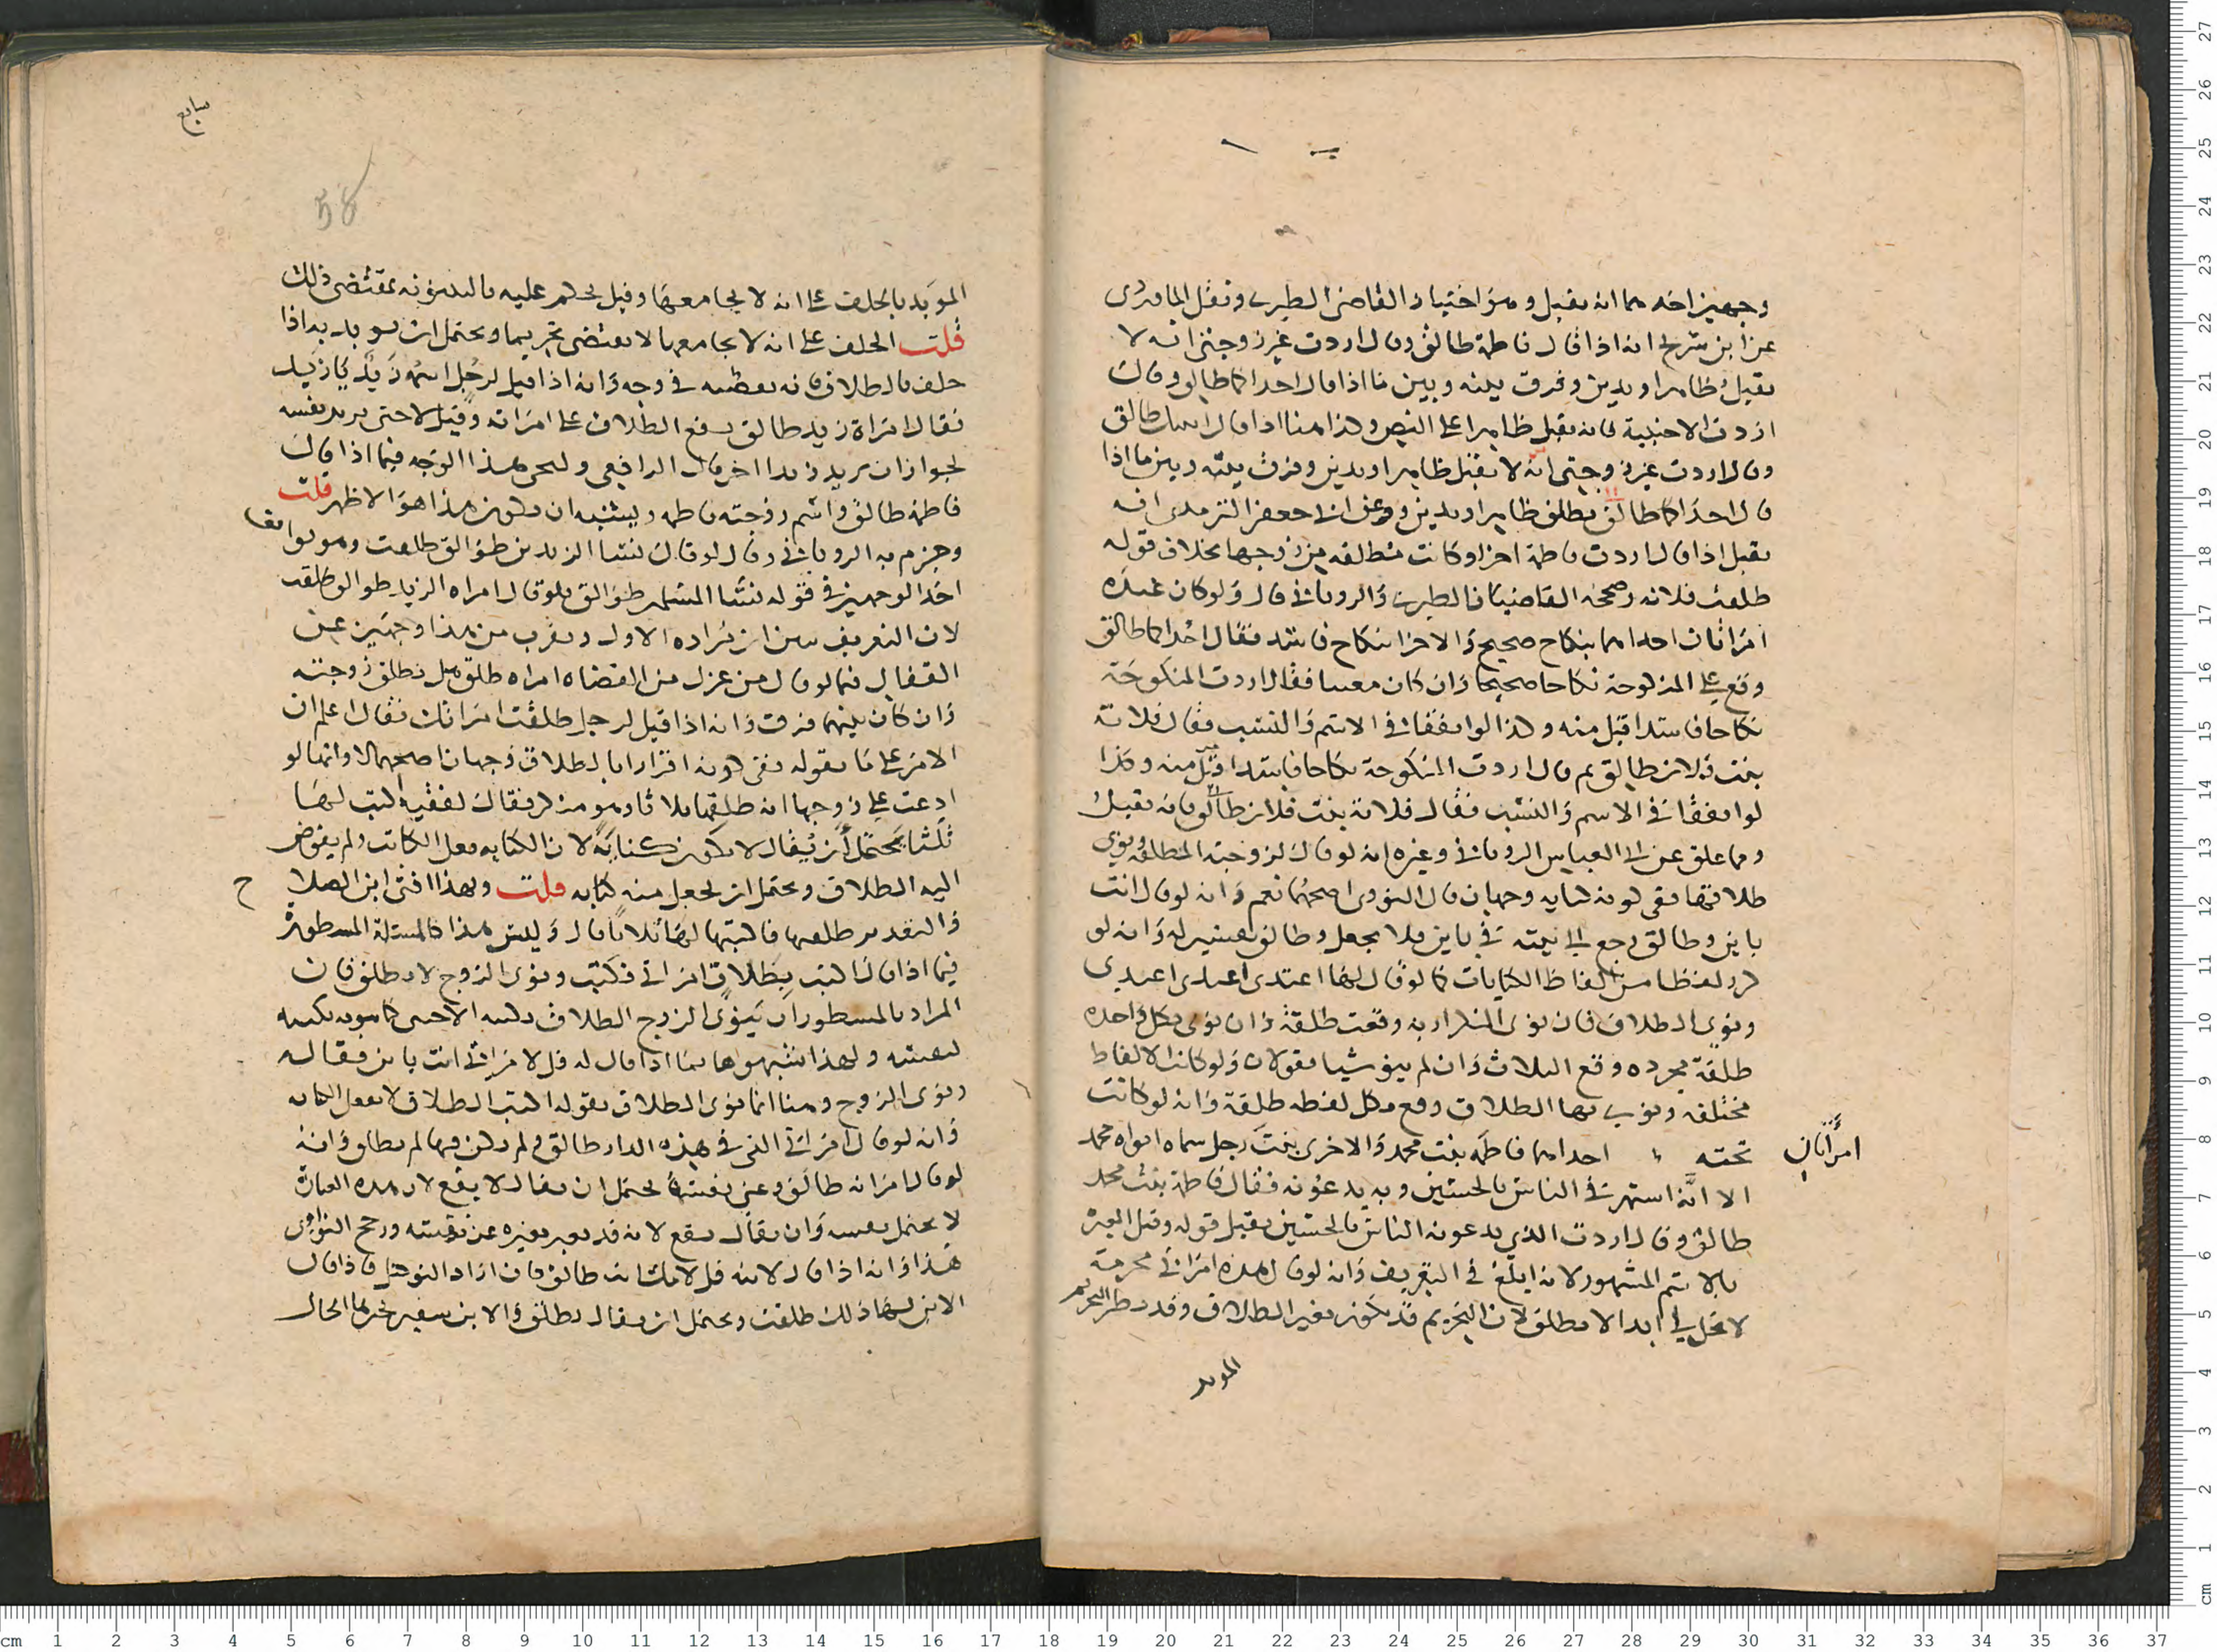 وجهين احدهما انه يقبل وهو اختيار القاضي الطبري ونقل الماوردي
عن ابن سريج انه اذا قال فاطمة طالق وقال اردت غير زوجتي انه لا
يقبل ظاهرا ويدين وفرق بينه وبين ما اذا قال احداكما طالق وقال
اردت الاجنبية فانه يقبل ظاهرا على النص وكذا هنا اذا قال طالق
وقال اردت غير زوجتي انه لا يقبل ظاهرا ويدين وفرق بينه وبين ما اذا
قال احداكما طالق يطلق ظاهرا ويدين وعن ابي جعفر الترمذي انه
يقبل اذا قال اردت فاطمة اخرى وكانت مطلقه من زوجها بخلاف قوله
طلقت فلانه وصححه القاضيان الطبري والروياني قال ولو كان عنده
امراتان احداهما بنكاح صحيح والاخرى بنكاح فاسد فقال احداكما طالق
وقع على المنكوحة نكاحا صحيحا وان كان معينا فقال اردت المنكوحة
نكاحا فاسدا قبل منه وكذا لو اتفقتا في الاسم والنسب فقال فلانة
بنت فلان طالق ثم قال اردت المنكوحة نكاحا فاسدا قبل منه وكذا
لو اتفقتا في الاسم والنسب فقال فلانة بنت فلان طالق فانه يقبل
ومما علق عن ابي العباس الروياني وغيره انه لو قال لزوجته المطلقة ونوى
طلاقها ففي كونه كنايه وجهان قال النووي اصحهما نعم وانه لو قال انت
باين وطالق رجع الى نيته في باين ولا يجعل وطالق تفسير له وانه لو
كرر لفظا من الفاظ الكنايات كما لو قال لها اعتدي اعتدي اعتدي
ونوى الطلاق فان نوى التكرار به وقعت طلقة وان نوى بكل واحدة
طلقة مجرده وقع الثلاث وان لم ينو شيا فقولان ولو كانت الالفاظ
مختلفه ونوى بها الطلاق وقع بكل لفظه طلقة وانه لو كانت
تحته احداهما فاطمه بنت محمد والاخرى بنت رجل سماه ابواه محمد
امرأتان
الا انه اشتهر في الناس بالحسين وبه يدعونه فقال فاطمة بنت محمد
طالق وقال اردت الذي يدعونه الناس بالحسين يقبل قوله وقيل العبرة
بالاسم المشهور لانه ابلغ في التعريف وانه لو قال هذه امراتي محرمة
لا تحل لي ابدا لا تطلق لان التحريم قد يكون بغير الطلاق وقد يظن التحريم
المويد
58
المؤبد بالحلف على انه لا يجامعها وقيل يحكم عليه بالبينونه بمقتضى ذلك
قلت الحلف على انه لا يجامعها لا يقتضي تحريما ويحتمل ان يريد به اذا
حلف بالطلاق فانه في وجه وانه اذا قيل لرجل اسمه زيد يا زيد
فقال امراة زيد طالق يقع الطلاق على امراته وقيل لا حتى يريد نفسه
لجواز ان يريد زيدا اخر قال الرافعي وليجي هذا الوجه فيما اذا قال
فاطمة طالق واسم زوجته فاطمه ويشبه ان يكون هذا هو الاظهر قلت
وجزم به الروياني وقال لو قال نسا الزيدين طوالق طلقت وهو يوافق
احد الوجهين في قوله نسا المسلمين طوالق فلو قال امراه الزيد طوالق طلقت
لان التعريف من ان يراده الاول ويقرب من هذا وجهين عن
القفال فيما لو قال من عزل من القضاه امراه طالق هل تطلق زوجته
وان كان بينهما فرق وانه اذا قيل لرجل طلقت امراتك فقال اعلم ان
الامر على ما يقوله ففي كونه اقرارا بالطلاق وجهان اصحهما لا وانها لو
ادعت على زوجها انه طلقها ثلاثا وهو منكر فقال لفقيه اكتب لها
ثلثا يحتمل أن يقال لا يكون كناية لان الكتابه فعل الكاتب ولم يفوض
اليه الطلاق ويحتمل ان يجعل منه كنايه قلت وبهذا افتى ابن الصلاح
والتقدير طلقتها فاكتبها لها ثلاثا قال وليس هذا كالمسئلة المسطورة
فيما اذا قال اكتب بطلاق امراتي فكتب ونوى الزوج لا تطلق فان
المراد بالمسطور ان ينوي الزوج الطلاق بكتبه الاجنبي كما ينويه بكتبه
لنفسه ولهذا شبهوها بما اذا قال له قل لامراتي انت باين فقاله
ونوى الزوج وهنا انما نوى الطلاق بقوله اكتب الطلاق لا بفعل الكاتب
وانه لو قال امراتي التي في هذه الدار طالق ولم تكن فيها لم تطلق وانه
لو قال امراته طالق وعنى نفسه يحتمل ان يقال لا يقع لان هذه العبارة
لا تحتمل نفسه وان يقال يقع لانه قد يعبر بغيره عن نفسه ورجح النواوي
هذا وانه اذا قال لابنه قل لامك انت طالق فان اراد التوكيل فاذا قال
الابن لها ذلك طلقت ويحتمل ان يقال تطلق والابن مخبر لها الحال